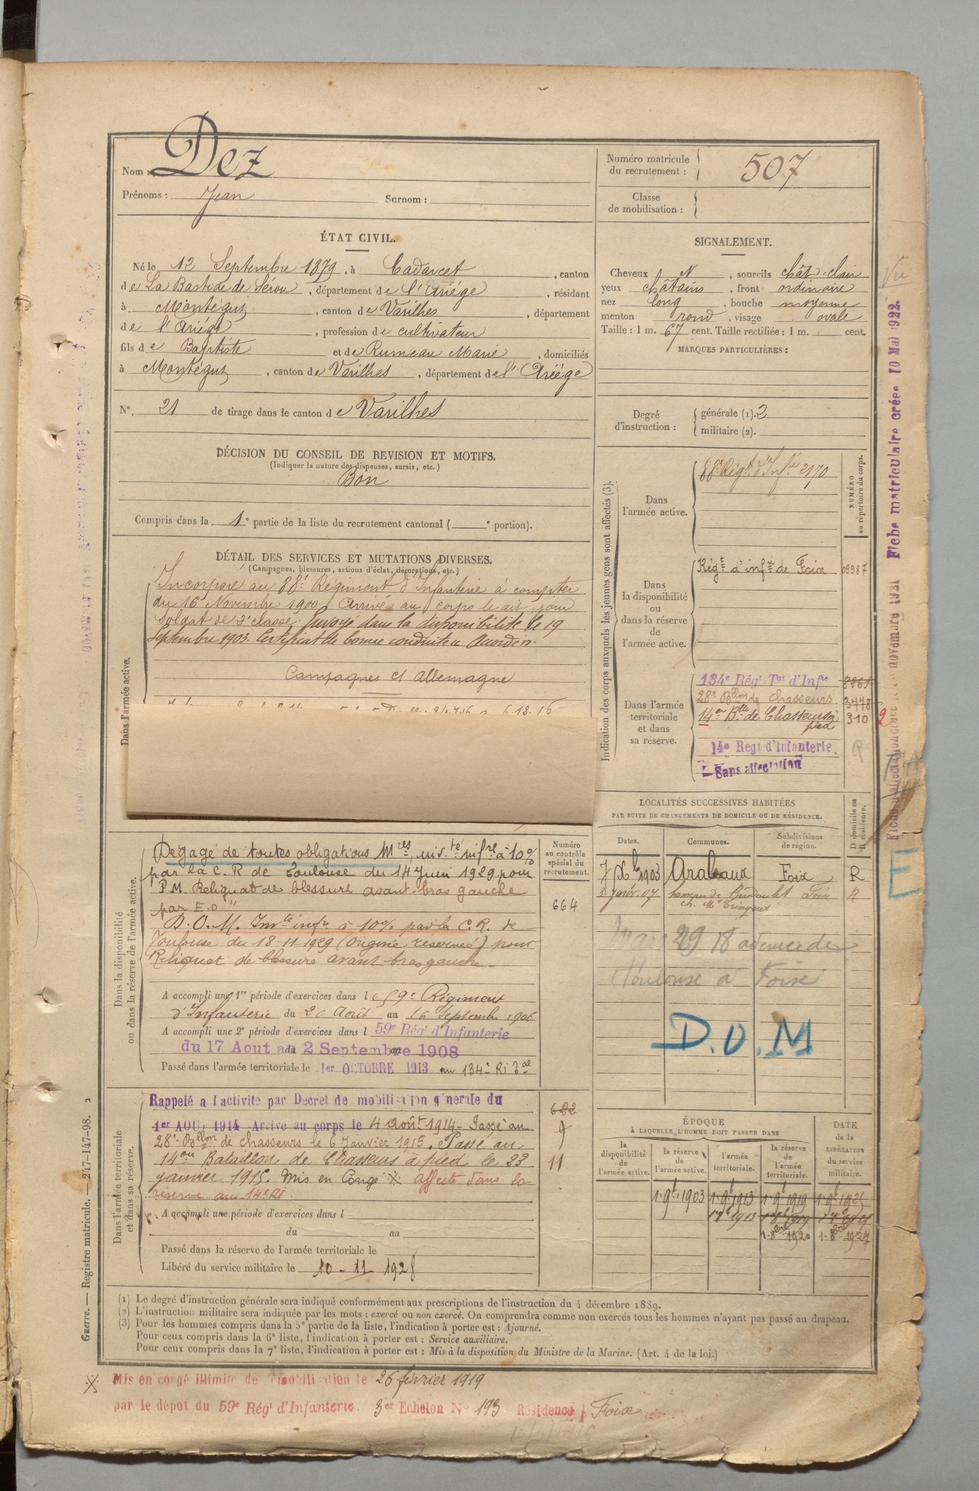 Nom : Dez
Prénoms : Jean Surnom :
Numéro matricule du recrutement : 507
Classe de mobilisation :
ÉTAT CIVIL.
Né le 12 Septembre 1879, à Cadarcet, canton
de La Bastide de Sérou, département de l'Ariège, résidant
à Montégut, canton de Varilhes, département
de l'Ariège, profession de cultivateur
fils de Baptiste et de Rumeau Marie, domiciliés
à Montégut, canton de Varilhes, département de l'Ariège
N°. 21 de tirage dans le canton de Varilhes
SIGNALEMENT.
Cheveux N, sourcils chât-clair
yeux châtains, front ordinaire
nez long, bouche moyenne
menton rond, visage ovale
Taille : 1 m. 67 cent. Taille rectifiée : 1 m. cent.
MARQUES PARTICULIÈRES :
Degré d'instruction : générale (1). 2
militaire (2).
DÉCISION DU CONSEIL DE REVISION ET MOTIFS.
(Indiquer la nature des dispenses, sursis, etc.)
Bon
Compris dans la 1e partie de la liste du recrutement cantonal ( e portion).
DÉTAIL DES SERVICES ET MUTATIONS DIVERSES.
(Campagnes, blessures, actions d'éclat, décorations, etc.)
Dans l'armée active.
Incorporé au 88e Régiment d'Infanterie à compter
du 16 Novembre 1900, Arrivé au corps le dit jour
Soldat de 2e classe. Envoyé dans la disponibilité le 19
Septembre 1903. Certificat de bonne conduite Accordé.
Campagnes ct Allemagne
Indication des corps auxquels les jeunes gens sont affectés (3).
NUMÉRO au répertoire du corps.
Dans l'armée active.
88e Régt d'Infie 2170
Dans la disponibilité ou dans la réserve de l'armée active.
Régt d'infie de Foix
Dans l'armée territoriale et dans sa réserve.
134e Rég' Tal d'Infie
28e Bllon de Chasseurs 3470
14e Bon de Chasseurs à pied 310
14e Regt d'Infanterie
Sans affectation
LOCALITÉS SUCCESSIVES HABITÉES
PAR SUITE DE CHANGEMENTS DE DOMICILE OU DE RÉSIDENCE.
Dates. Communes. Subdivisions de région. D domicile ou R résidence.
1903 Foix R
8 Janv. 07 Foix R
Mars 29
Toulouse à Foix
D.O.M
Dans la disponibilité ou dans la réserve de l'armée active.
Numéro au contrôle spécial du recrutement.
664
Dégagé de toutes obligations Mres, inv. té inf re à 10%
par la C.R de Toulouse du 14 Juin 1929 pour
P.M. Reliquat de blessure avant-bras gauche
par E.O"
D.O.M. Invté infre à 10% par la C.R. de
Toulouse du 18-11-1929 (Origine réservée) pour
Reliquat de blessure avant-bras gauche
A accompli une 1re période d'exercices dans l e 59e Régiment
d'Infanterie du 20 Août au 16 Septembre 1906
A accompli une 2e période d'exercices dans l 59e Rég' d'Infanterie
du 17 Aout au 2 Septembre 1908
Passé dans l'armée territoriale le 1er OCTOBRE 1913 au 134e RI Tal
Dans l'armée territoriale et dans sa réserve.
Rappelé a l'activité par Decret de mobilisation générale du
1er AOUT 1914 Arrivé au corps le 4 Août 1914. Passé au
28e Bllon de chasseurs le 6 Janvier 1915. Passé au
14eme Bataillon de Chasseurs à pied le 23
janvier 1915. Mis en Congé X affecté dans la
réserve au 14e RI.
682
9
11
A accompli une période d'exercices dans l
du au
Passé dans la réserve de l'armée territoriale le
Libéré du service militaire le 10-11-1928
ÉPOQUE
À LAQUELLE L'HOMME DOIT PASSER DANS
la disponibilité de l'armée active. la réserve de l'armée active. l'armée territoriale. la réserve de l'armée territoriale. DATE de la LIBÉRATION du service militaire.
1.9bre 1903 1.9bre 1913 1.9bre 1919
(1) Le degré d'instruction générale sera indiqué conformément aux prescriptions de l'instruction du 4 décembre 1889.
(2) L'instruction militaire sera indiquée par les mots : exercé ou non exercé. On comprendra comme non exercés tous les hommes n'ayant pas passé au drapeau.
(3) Pour les hommes compris dans la 5e partie de la liste, l'indication à porter est : Ajourné.
Pour ceux compris dans la 6e liste, l'indication à porter est : Service auxiliaire.
Pour ceux compris dans la 7e liste, l'indication à porter est : Mis à la disposition du Ministre de la Marine. (Art. 4 de la loi.)
X Mis en congé illimité de démobilisation le 26 février 1919
par le dépot du 59e Rég' d'Infanterie. 3er Echelon N° 193 Résidence Foix
Guerre. — Registre matricule. — 247-147-98. 2
Fiche matriculaire créée 10 Mai 1922.